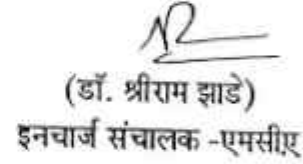 (डॉ. श्रीराम झाडे)
इनचार्ज संचालक -एमसीए